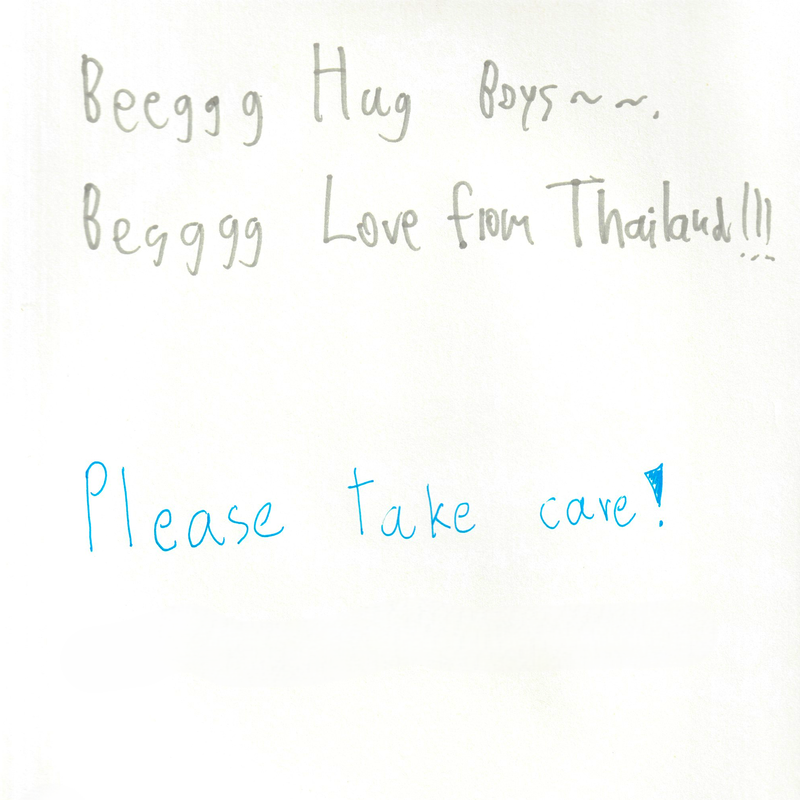 Beeggg Hug Boys~~.
Begggg Love from Thailand!!!
Please take care!